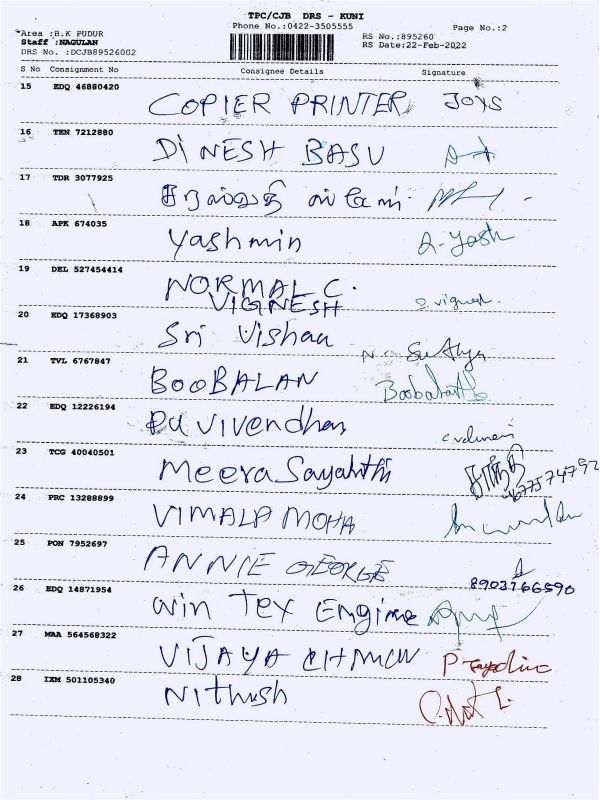 TPC/CJB DRS - KUNI
Phone No.:0422-3505555
Page No.:2
Area :B.K PUDUR
RS No.:895260
Staff :NAGULAN
RS Date:22-Feb-2022
DRS No. :DCJB89526002
S No Consignment No Consignee Details Signature
15 EDQ 46880420
COPIER PRINTER JOYS
16 TEN 7212880
DINESH BASU
17 TDR 3077925
18 APK 674035
Yashmin R-Yash
19 DEL 527454414
NORMAL C.
VIGNESH
20 EDQ 17368903
Sri Vishaa
21 TVL 6767847
BOOBALAN
22 EDQ 12226194
23 TCG 40040501
Meera
24 PRC 13288899
VIMALA MOHA
25 PON 7952697
ANNIE GEORGE
8903766590
26 EDQ 14871954
Win Tex Engine
27 MAA 564568322
VIJAYA
28 IXM 501105340
Nithish